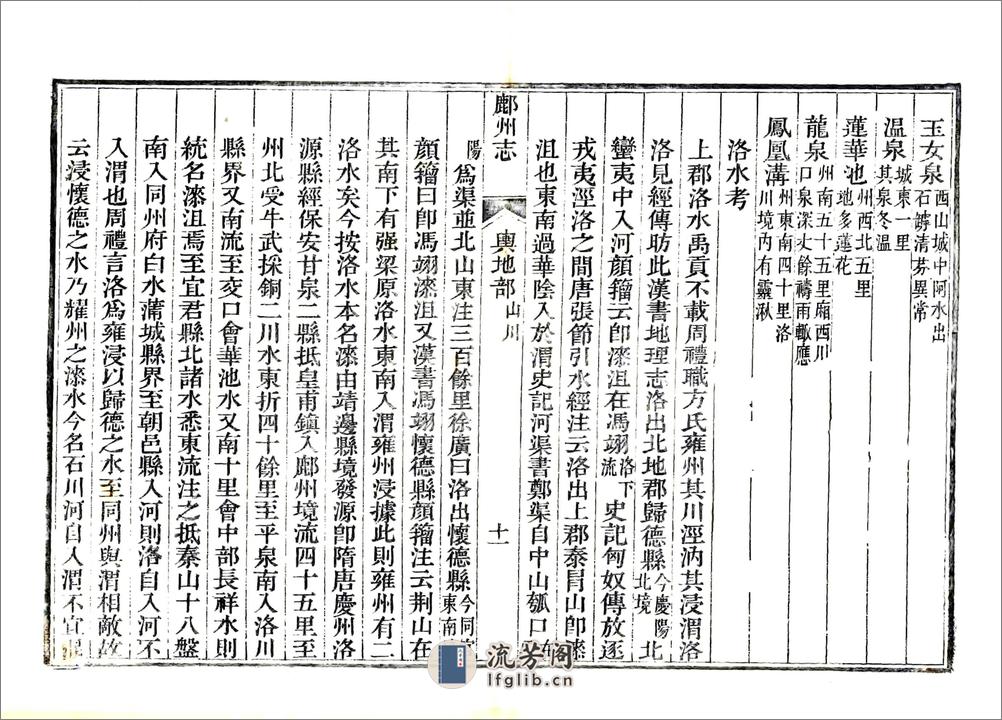 玉女泉 西山城中阿水出
石罅清芬異常
温泉 城東一里
其泉冬温
蓮華池 州西北五里
地多蓮花
龍泉 州南五十五里廂西川
口泉深丈餘禱雨輙應
鳳凰溝 州東南四十里洛
川境内有靈湫
洛水考
上郡洛水禹貢不載周禮職方氏雍州其川涇汭其浸渭洛
洛見經傳昉此漢書地理志洛出北地郡歸德縣 今慶陽
北境 北
蠻夷中入河顔籀云卽漆沮在馮翊 洛下
流 史記匈奴傳放逐
戎夷涇洛之間唐張節引水經注云洛出上郡泰冒山卽漆
沮也東南過華陰入於渭史記河渠書鄭渠自中山瓠口
鄜州志
輿地部 山川
十一
陽 爲渠並北山東注三百餘里徐廣曰洛出懷德縣 今同
東南
顔籀曰卽馮翊漆沮又漢書馮翊懷德縣顔籀注云荆山在
其南下有强梁原洛水東南入渭雍州浸據此則雍州有二
洛水矣今按洛水本名漆由靖邊縣境發源卽隋唐慶州洛
源縣經保安甘泉二縣抵皇甫鎮入鄜州境流四十五里至
州北受牛武採銅二川水東折四十餘里至平泉南入洛川
縣界又南流至交口會華池水又南十里會中部長祥水則
統名漆沮焉至宜君縣北諸水悉東流注之抵秦山十八盤
南入同州府白水蒲城縣界至朝邑縣入河則洛自入河不
入渭也周禮言洛爲雍浸以歸德之水至同州與渭相敵故
云浸懷德之水乃耀州之漆水今名石川河自入渭不宜
流芳阁
lfglib.cn